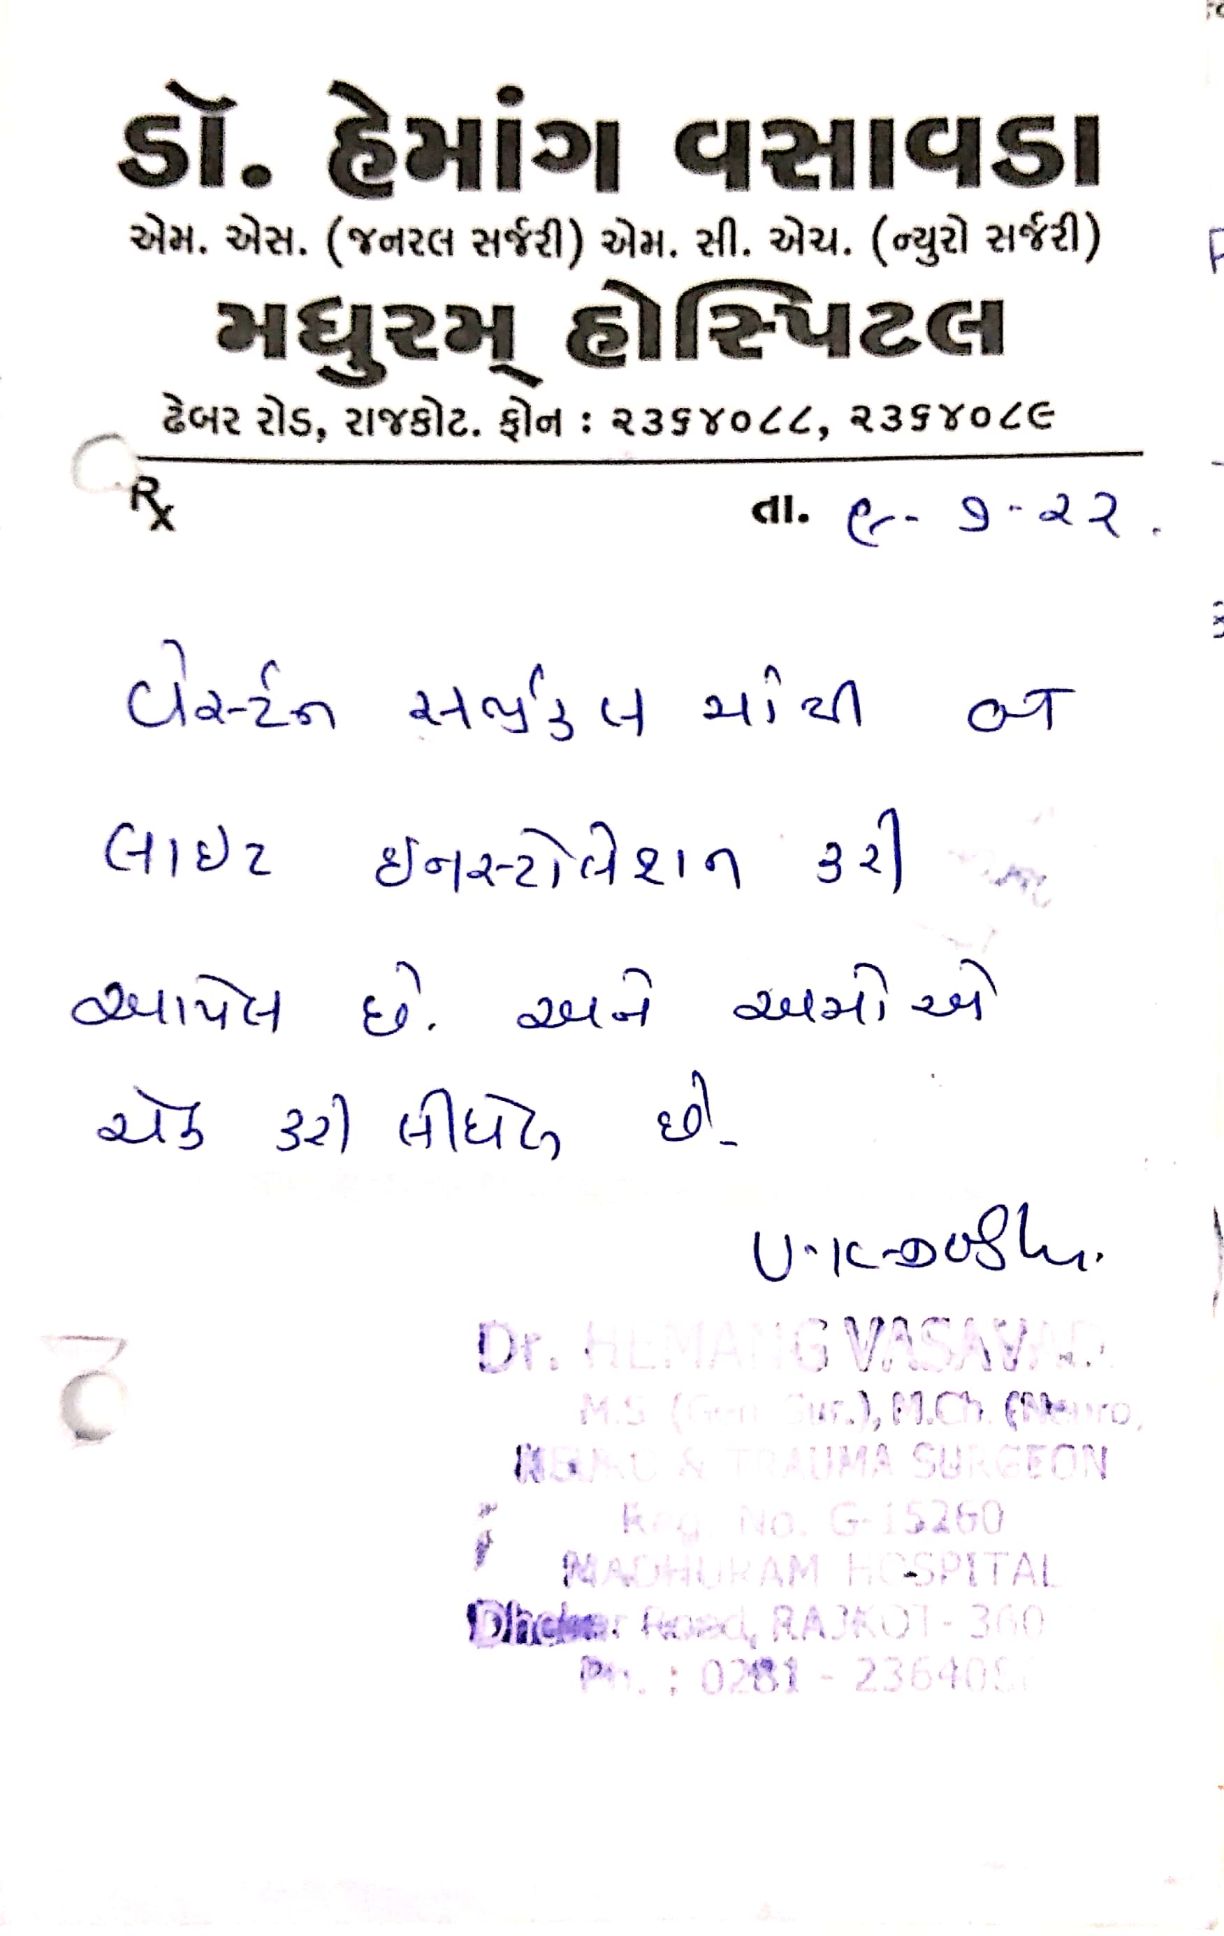 ડૉ. હેમાંગ વસાવડા
એમ. એસ. (જનરલ સર્જરી) એમ. સી. એચ. (ન્યુરો સર્જરી)
મધુરમ્ હોસ્પિટલ
ઢેબર રોડ, રાજકોટ. ફોન : ૨૩૬૪૦૮૮, ૨૩૬૪૦૮૯
Rx
તા. ૯-૭-૨૨.
વેસ્ટર્ન સર્જીકલ માંથી
લાઇટ ઇનસ્ટોલેશન કરી
આપેલ છે. અને અમોએ
ચેક કરી લીધેલ છે.
U.K.Doshi.
Dr. HEMANG VASAVADA
M.S (Gen Sur.), M.Ch. (Neuro,
NEURO & TRAUMA SURGEON
Reg No. G-15260
MADHURAM HOSPITAL
Dhebar Road, RAJKOT - 360
Ph. : 0281 - 236408